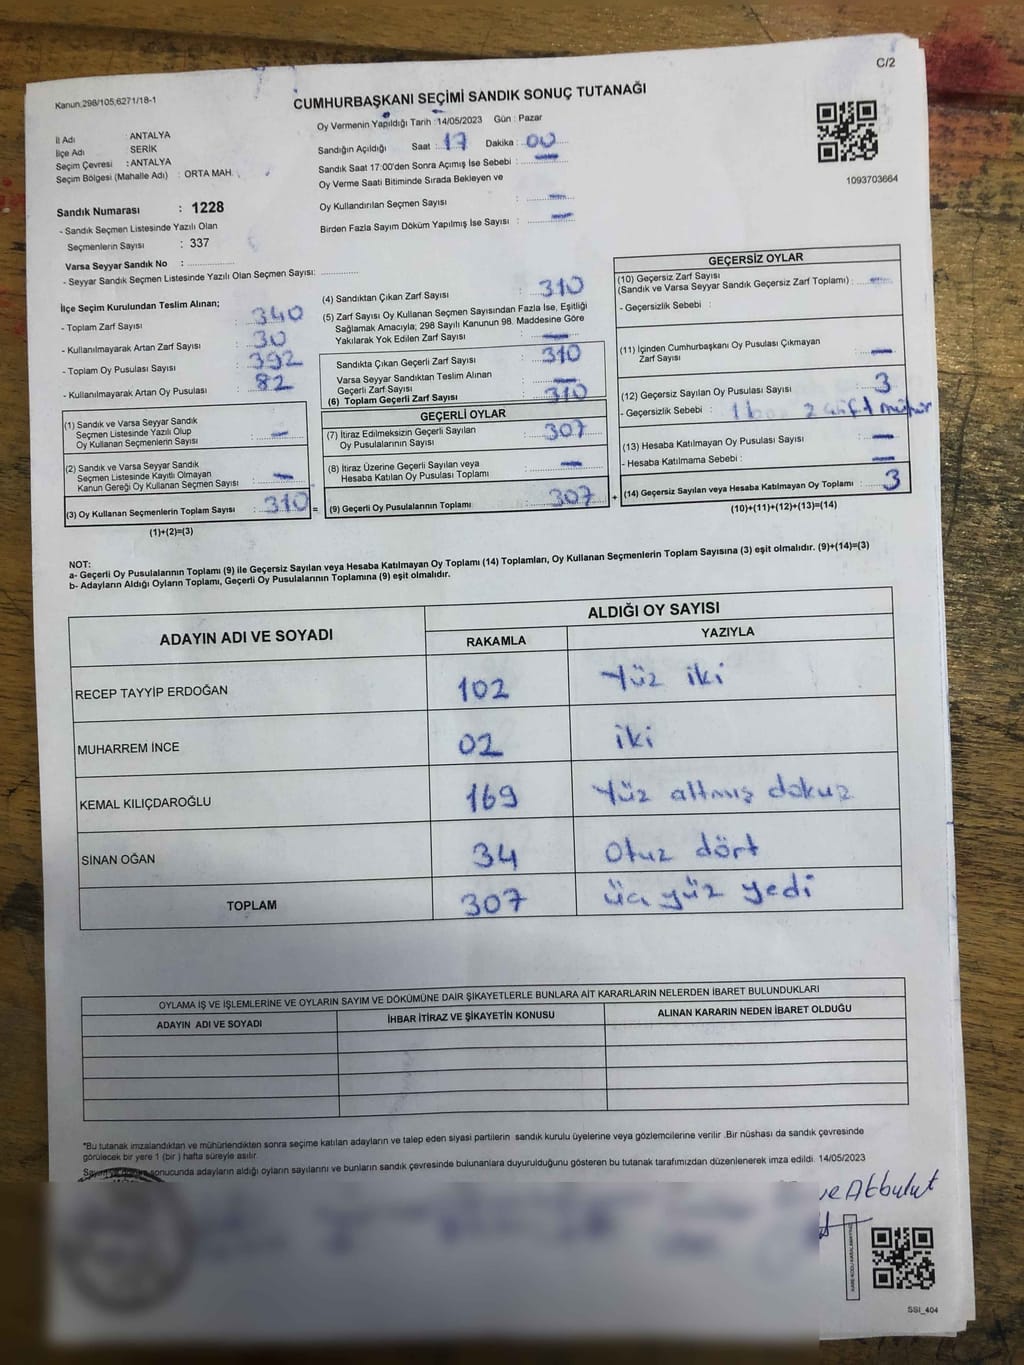 C/2
Kanun:298/105,6271/18-1
CUMHURBAŞKANI SEÇİMİ SANDIK SONUÇ TUTANAĞI
Oy Vermenin Yapıldığı Tarih : 14/05/2023 Gün : Pazar
İl Adı : ANTALYA
İlçe Adı : SERİK
Seçim Çevresi : ANTALYA
Seçim Bölgesi (Mahalle Adı) : ORTA MAH.
Sandığın Açıldığı Saat : 17 Dakika : 00
Sandık Saat 17:00'den Sonra Açımış İse Sebebi : —
Oy Verme Saati Bitiminde Sırada Bekleyen ve
Oy Kullandırılan Seçmen Sayısı : —
Birden Fazla Sayım Döküm Yapılmış İse Sayısı : —
1093703664
Sandık Numarası : 1228
- Sandık Seçmen Listesinde Yazılı Olan
Seçmenlerin Sayısı : 337
Varsa Seyyar Sandık No :
- Seyyar Sandık Seçmen Listesinde Yazılı Olan Seçmen Sayısı:
İlçe Seçim Kurulundan Teslim Alınan;
- Toplam Zarf Sayısı : 340
- Kullanılmayarak Artan Zarf Sayısı : 30
- Toplam Oy Pusulası Sayısı : 392
- Kullanılmayarak Artan Oy Pusulası : 82
(1) Sandık ve Varsa Seyyar Sandık
Seçmen Listesinde Yazılı Olup
Oy Kullanan Seçmenlerin Sayısı : —
(2) Sandık ve Varsa Seyyar Sandık
Seçmen Listesinde Kayıtlı Olmayan
Kanun Gereği Oy Kullanan Seçmen Sayısı : —
(3) Oy Kullanan Seçmenlerin Toplam Sayısı : 310 =
(1)+(2)=(3)
(4) Sandıktan Çıkan Zarf Sayısı : 310
(5) Zarf Sayısı Oy Kullanan Seçmen Sayısından Fazla İse, Eşitliği
Sağlamak Amacıyla; 298 Sayılı Kanunun 98. Maddesine Göre
Yakılarak Yok Edilen Zarf Sayısı : —
Sandıkta Çıkan Geçerli Zarf Sayısı : 310
Varsa Seyyar Sandıktan Teslim Alınan
Geçerli Zarf Sayısı : —
(6) Toplam Geçerli Zarf Sayısı : 310
GEÇERLİ OYLAR
(7) İtiraz Edilmeksizin Geçerli Sayılan
Oy Pusulalarının Sayısı : 307
(8) İtiraz Üzerine Geçerli Sayılan veya
Hesaba Katılan Oy Pusulası Toplamı : —
(9) Geçerli Oy Pusulalarının Toplamı : 307 +
GEÇERSİZ OYLAR
(10) Geçersiz Zarf Sayısı
(Sandık ve Varsa Seyyar Sandık Geçersiz Zarf Toplamı) : —
- Geçersizlik Sebebi :
(11) İçinden Cumhurbaşkanı Oy Pusulası Çıkmayan
Zarf Sayısı : —
(12) Geçersiz Sayılan Oy Pusulası Sayısı : 3
- Geçersizlik Sebebi : 1 2 çift mühür
(13) Hesaba Katılmayan Oy Pusulası Sayısı : —
- Hesaba Katılmama Sebebi : —
(14) Geçersiz Sayılan veya Hesaba Katılmayan Oy Toplamı : 3
(10)+(11)+(12)+(13)=(14)
NOT:
a- Geçerli Oy Pusulalarının Toplamı (9) ile Geçersiz Sayılan veya Hesaba Katılmayan Oy Toplamı (14) Toplamları, Oy Kullanan Seçmenlerin Toplam Sayısına (3) eşit olmalıdır. (9)+(14)=(3)
b- Adayların Aldığı Oyların Toplamı, Geçerli Oy Pusulalarının Toplamına (9) eşit olmalıdır.
ADAYIN ADI VE SOYADI ALDIĞI OY SAYISI
RAKAMLA YAZIYLA
RECEP TAYYİP ERDOĞAN 102 Yüz iki
MUHARREM İNCE 02 iki
KEMAL KILIÇDAROĞLU 169 Yüz altmış dokuz
SİNAN OĞAN 34 Otuz dört
TOPLAM 307 üç yüz yedi
OYLAMA İŞ VE İŞLEMLERİNE VE OYLARIN SAYIM VE DÖKÜMÜNE DAİR ŞİKAYETLERLE BUNLARA AİT KARARLARIN NELERDEN İBARET BULUNDUKLARI
ADAYIN ADI VE SOYADI İHBAR İTİRAZ VE ŞİKAYETİN KONUSU ALINAN KARARIN NEDEN İBARET OLDUĞU
*Bu tutanak imzalandıktan ve mühürlendikten sonra seçime katılan adayların ve talep eden siyasi partilerin sandık kurulu üyelerine veya gözlemcilerine verilir .Bir nüshası da sandık çevresinde
görülecek bir yere 1 (bir ) hafta süreyle asılır.
sonucunda adayların aldığı oyların sayılarını ve bunların sandık çevresinde bulunanlara duyurulduğunu gösteren bu tutanak tarafımızdan düzenlenerek imza edildi. 14/05/2023
ve Akbulut
SSI_404